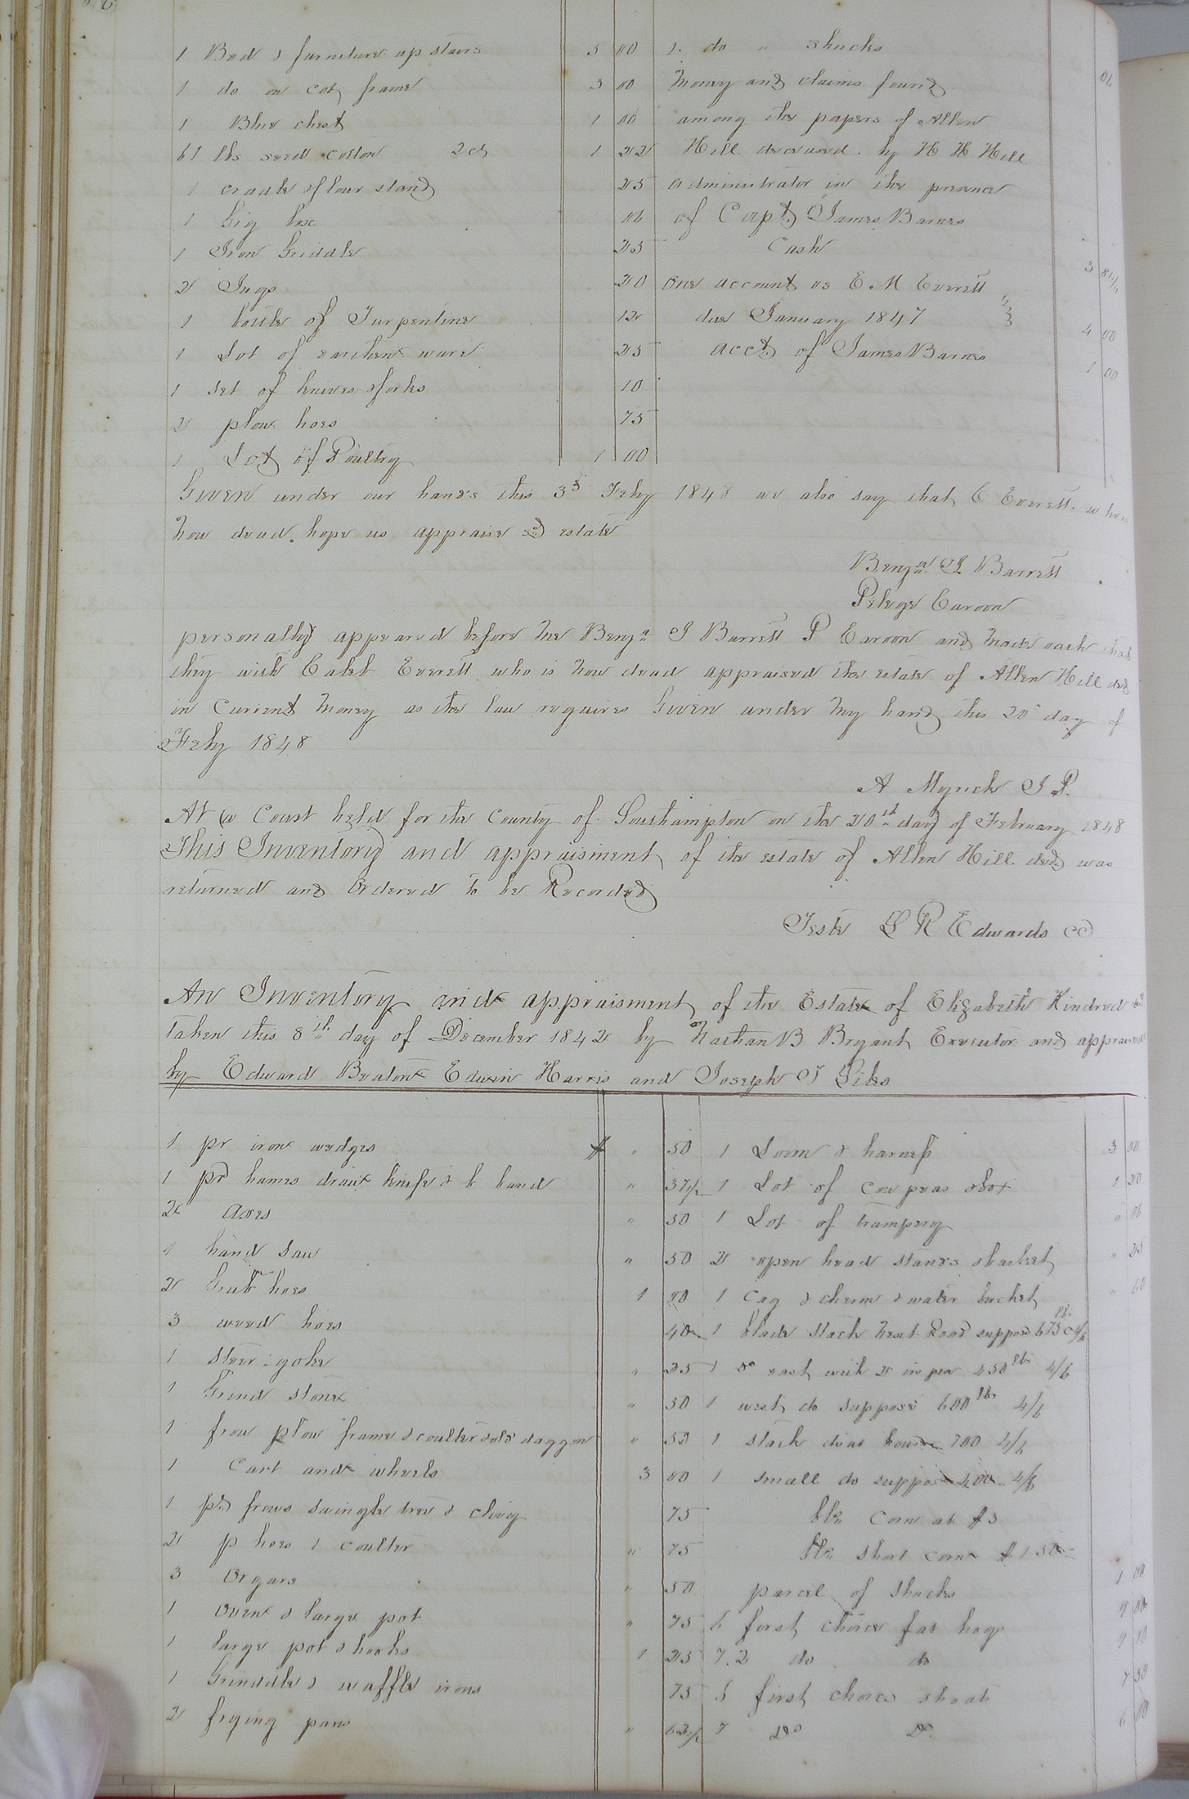 1 Bed & furniture up stairs 3 00
1 do on cot frame 3 00
1 Blue chest 1 00
61 lbs seed cotton 2 cts 1 22
1 cradle & flour stand 25
1 Gig box 06
1 Iron Griddle 25
2 Jugs 20
1 bottle of Turpentine 12
1 Lot of earthen ware 25
1 set of knives & forks 10
2 plow hoes 75
1 Lot of Poultry 1 00
1 do " shucks 06
Money and claims found
among the papers of Allen
Hill deceased by H H Hill
administrator in the presence
of Capt James Barnes
Cash 3
One account vs E. M Everett
due January 1847 4 00
acct of James Barnes 1 00
Given under our hands this 3d Feby 1848 we also say that C Everett who is
now dead, hope us appraise sd estate
Benjn J. Barrett
personally appeared before me Benjn J Barrett P and made oath that
they with Caleb Everett who is now dead appraised the estate of Allen Hill decd
in Curient Money as the law requires Given under My hand this 20 day of
Feby 1848
A Myrick J P.
At a Court held for the County of Southampton on the 20th day of February 1848
This Inventory and appraisment of the estate of Allen Hill decd was
returned and Ordered to be Recorded
Teste L R Edwards CC
An Inventory and appraisment of the Estate of Elizabeth Kindred
taken this 8th day of December 1842 by Nathan B Bryant Executor and appraised
by Edward Beaton Edwin Harris and Joseph T Giles
1 pr iron wedges $ " 50
1 pr hames draw knife & b band " 37 1/2
2 axes " 50
1 hand saw " 50
2 Grub hoes 1 00
3 weed hoes 40
1 steer yoke " 25
1 Grind stone " 50
1 frow plow frame & coulter & old daggon " 50
1 Cart and wheels 3 00
1 pr frows swingle tree & clevy 75
2 p hoes 1 coulter " 75
3 " 50
1 oven & large pot " 75
1 large pot & hooks 1 25
1 Grinddle & waffle irons 75
2 frying pans " 62 1/2
1 Loom & harness 3 00
1 Lot of cow peas & box 1 50
1 Lot of trumpery " 06
2 open head stands & basket " 25
1 Cag & churn & water bucket " 60
1 blade stack near Road suppose 675 lbs
1 do east with 2 in pen 450 lbs 4/6
1 west do suppose 600 lbs 4/6
1 stack do at house 700 4/6
1 small do suppose 400 4/6
bbls Corn at $3
bbls short corn $1 50
parcel of shucks 1 00
6 first choice fat hogs
7. 2 do do
6 first choice shoats 7 50
7 Do Do 6 00